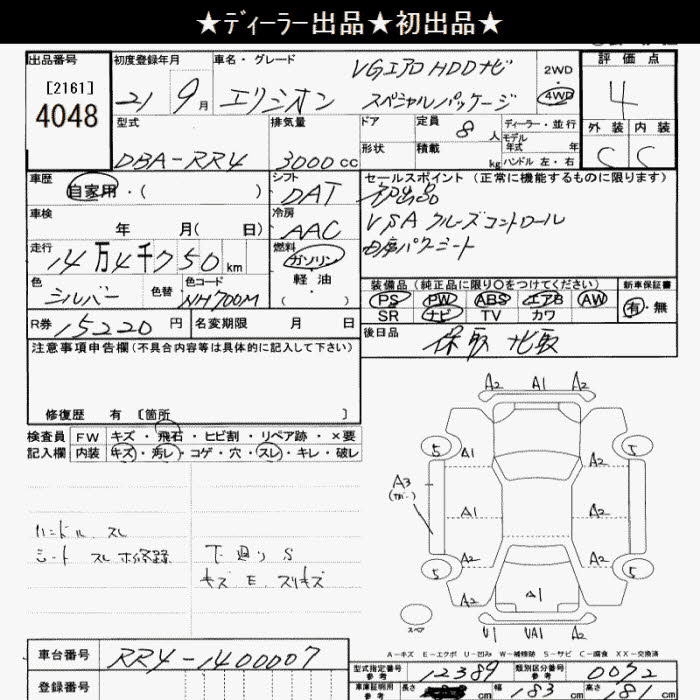 ★ディーラー出品★初出品★
出品番号
[2161]
4048
初度登録年月
21 9月
車名・グレード
エリシオン
VGエアロHDDナビ
スペシャルパッケージ
2WD
4WD
評価点
4
外装 内装
C C
型式
DBA-RR4
排気量
3000cc
ドア
形状
定員
8人
積載
kg
ディーラー・並行
モデル
年式 年
ハンドル 左・右
車歴
自家用・( )
シフト
DAT
セールスポイント (正常に機能するものに限ります)
初出品
VSA クルーズコントロール
車検
年 月( 日)
冷房
AAC
走行
14万4千750km
燃料
ガソリン
軽油
( )
色
シルバー
色替
色コード
NH700M
装備品 (純正品に限り○をつけてください)
PS PW ABS エアB AW
SR ナビ TV カワ
新車保証書
有・無
R券 15220円
名変期限 月 日
後日品
保取 ナビ取
注意事項申告欄 (不具合内容等は具体的に記入して下さい)
修復歴 有 〔箇所 〕
検査員
記入欄
FW キズ・飛石・ヒビ割・リペア跡・×要
内装 キズ・汚レ・コゲ・穴・スレ・キレ・破レ
ハンドル スレ
シート スレ
下廻り S
キズ E スリキズ
A2 A1 A2
5 5
A1 A2
A3
A1 A2
A2 A2
5 5
A2 A1 A2
スペア
U1 UA1 A2
A-キズ E-エクボ U-凹み W-補修跡 S-サビ C-腐食 XX-交換済
車台番号
RR4-1400007
登録番号
型式指定番号
参考
12389
類別区分番号
参考
0032
車庫証明用
参考
長さ cm
幅 183 cm
高さ 181 cm